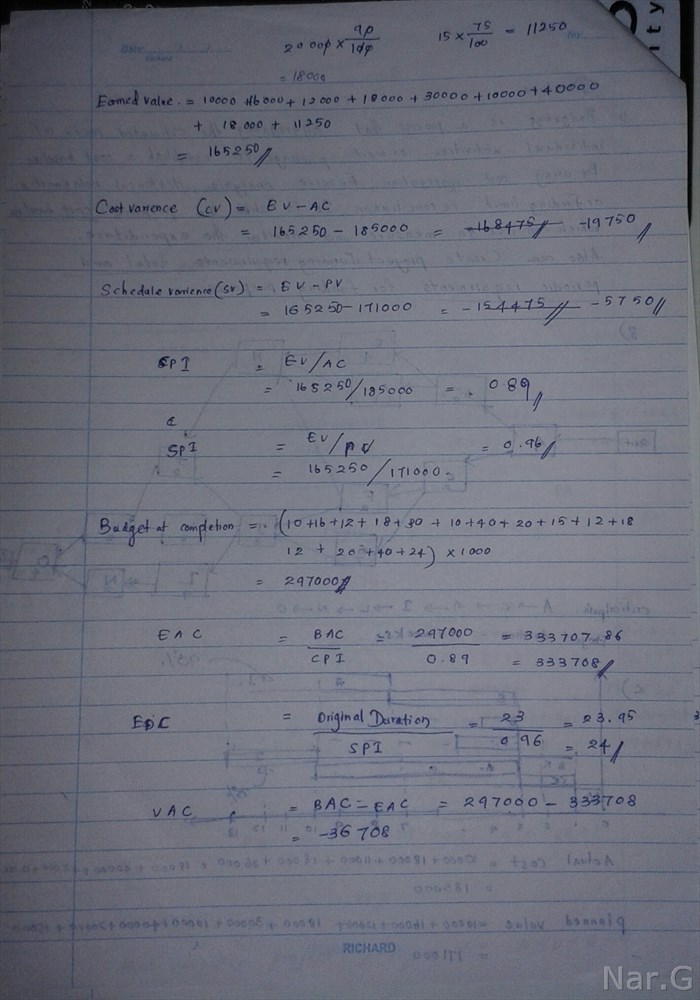 20000 × 90/100
15 × 75/100 = 11250
= 18000
Earned value. = 10000 + 16000 + 12000 + 18000 + 30000 + 10000 + 40000
+ 18000 + 11250
= 165250
Cost varience (CV) = EV - AC
= 165250 - 185000 = -168475 -19750
Schedule varience (SV) = EV - PV
= 165250 - 171000 = -154475 -5750
CPI = EV/AC
= 165250/185000 = 0.89
SPI = EV/PV = 0.96
= 165250/171000
Budget at completion = (10+16+12+18+30+10+40+20+15+12+18
12 + 20+40+24) ×1000
= 297000
EAC = BAC/CPI = 297000/0.89 = 333707.86
= 333708
EDC = Original Duration/SPI = 23/0.96 = 23.95
= 24
VAC = BAC - EAC = 297000 - 333708
= -36708
RICHARD
Nar.G